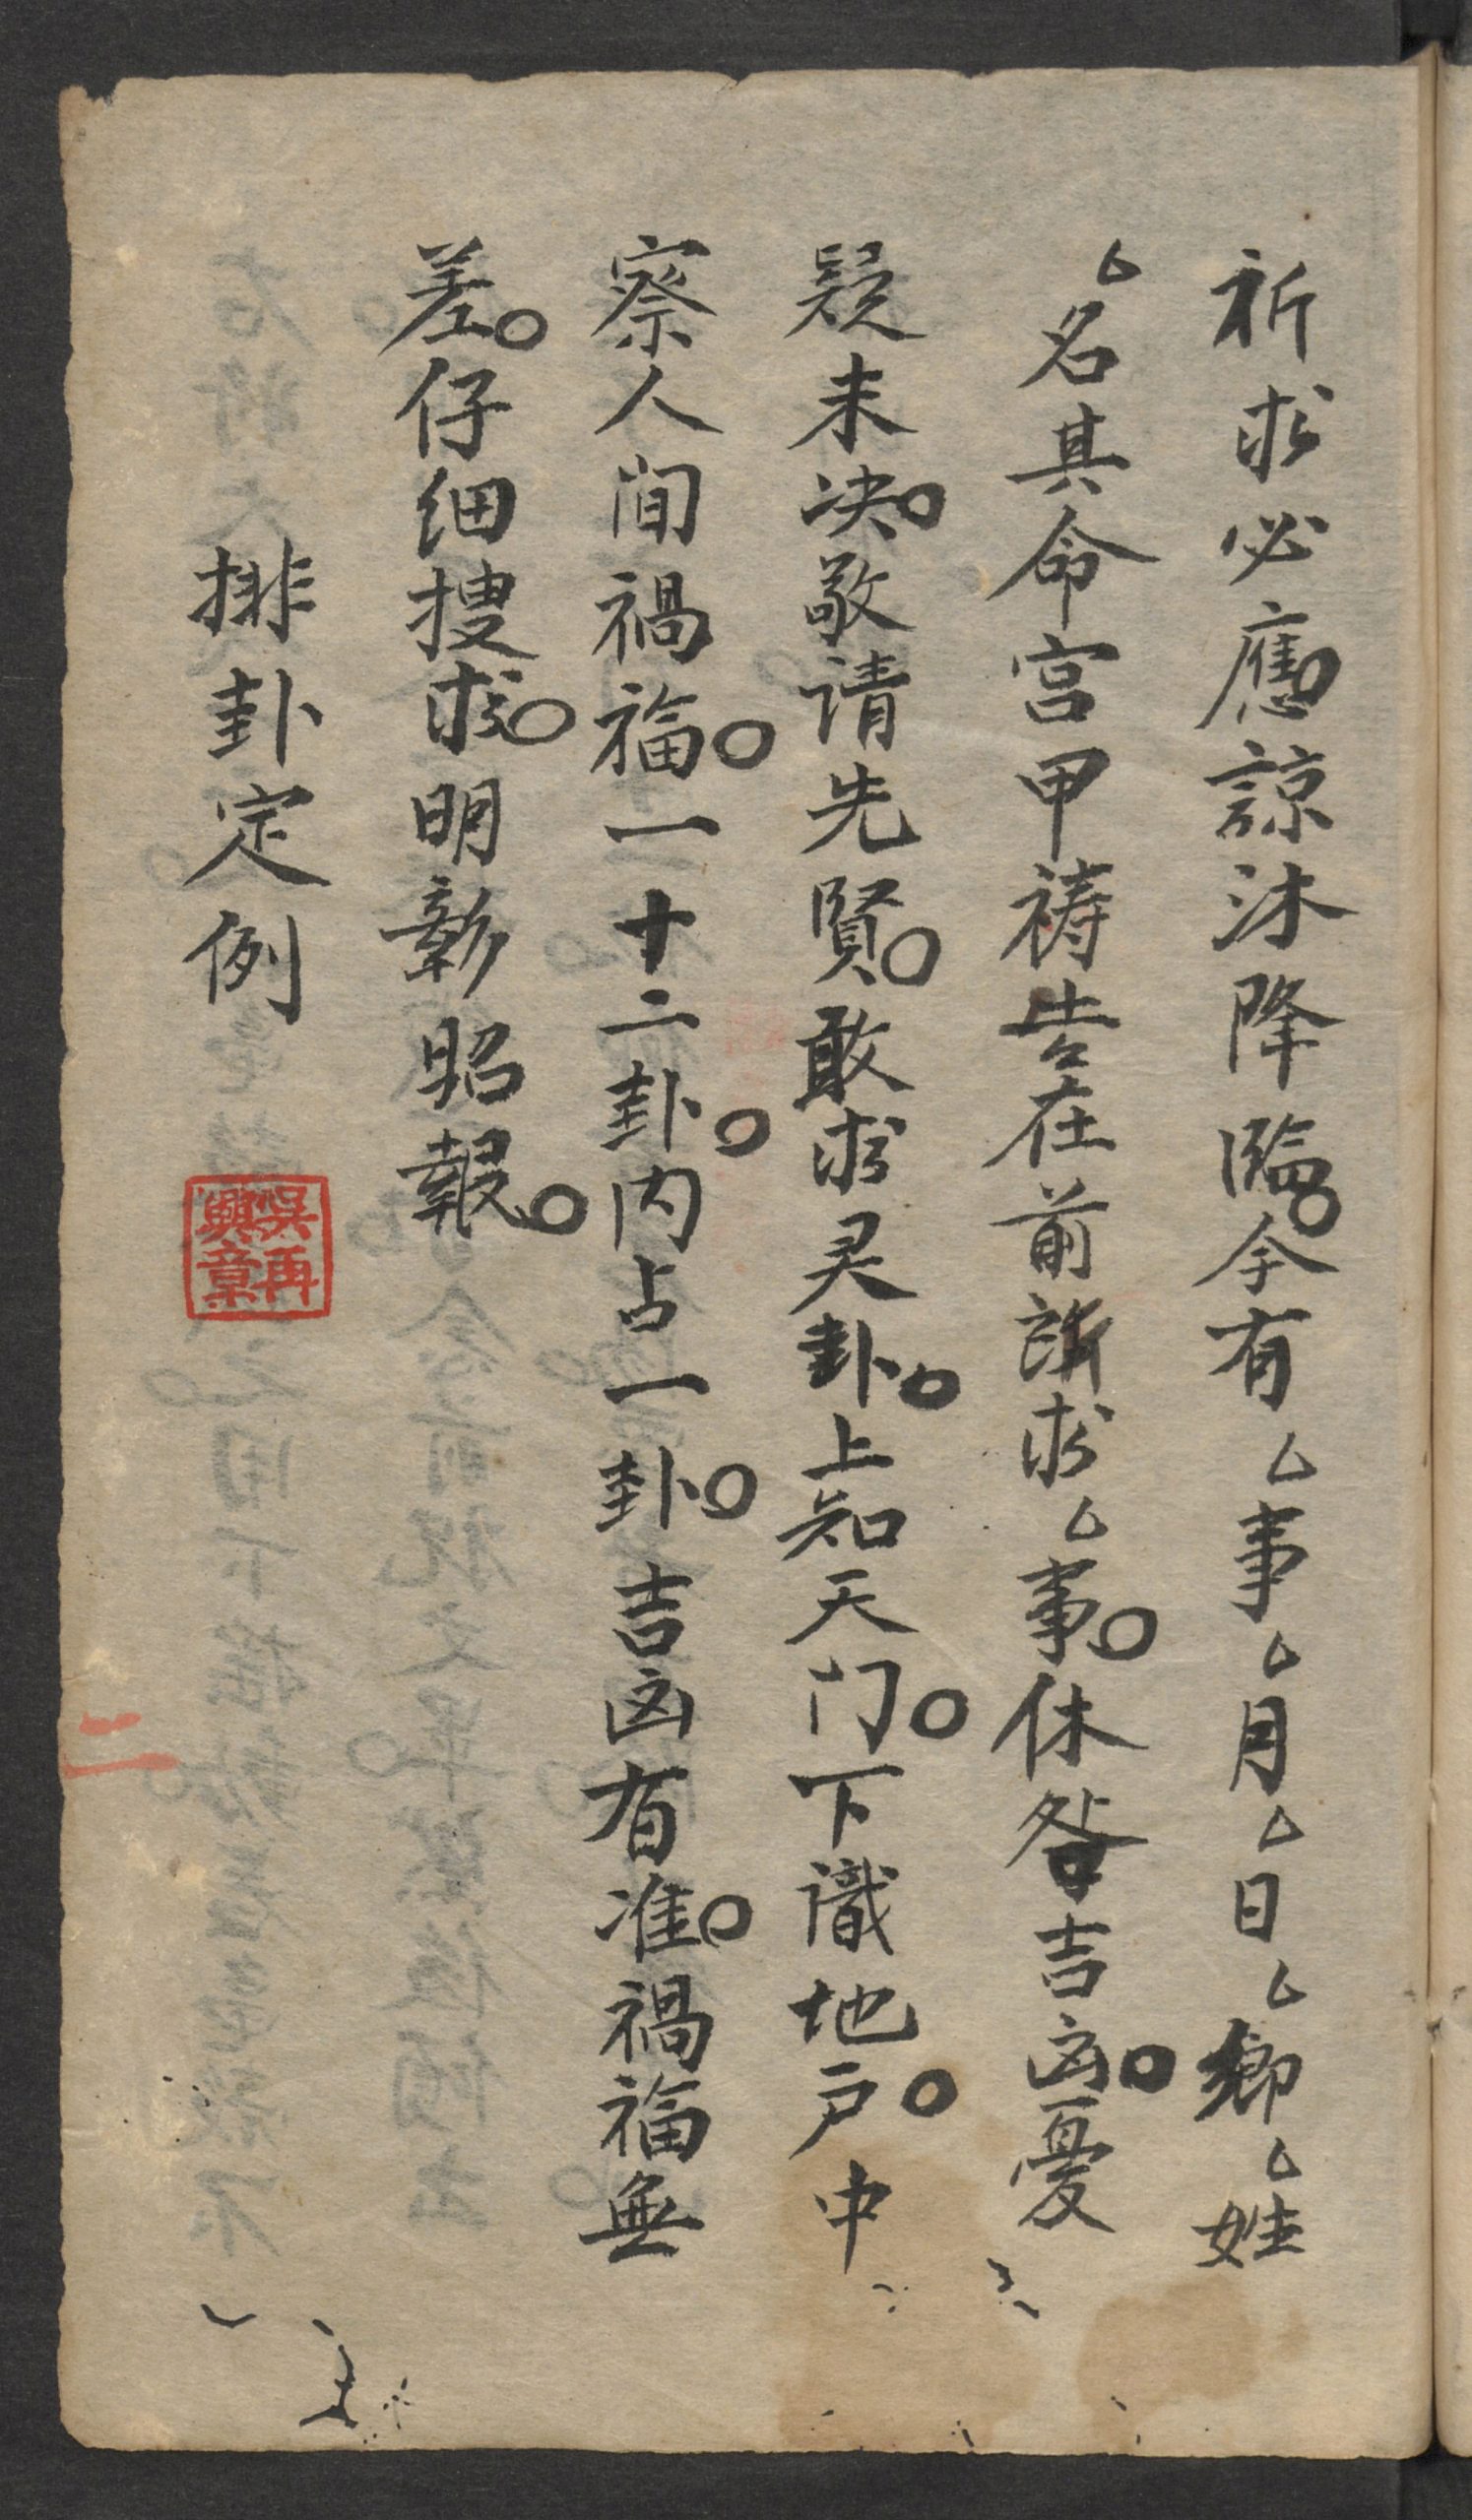 祈求必應○諒沐降臨○今有厶事厶月厶日厶鄉厶姓
厶名其命宫甲祷告在前所求厶事○休咎吉凶○憂
疑未决○敬请先賢○敢求灵卦○上知天门○下識地户○中
察人间禍福○一十二卦○内占一卦○吉凶有准○禍福無
差○仔细搜求○明彰昭報○
排卦定例
吳再興章
二